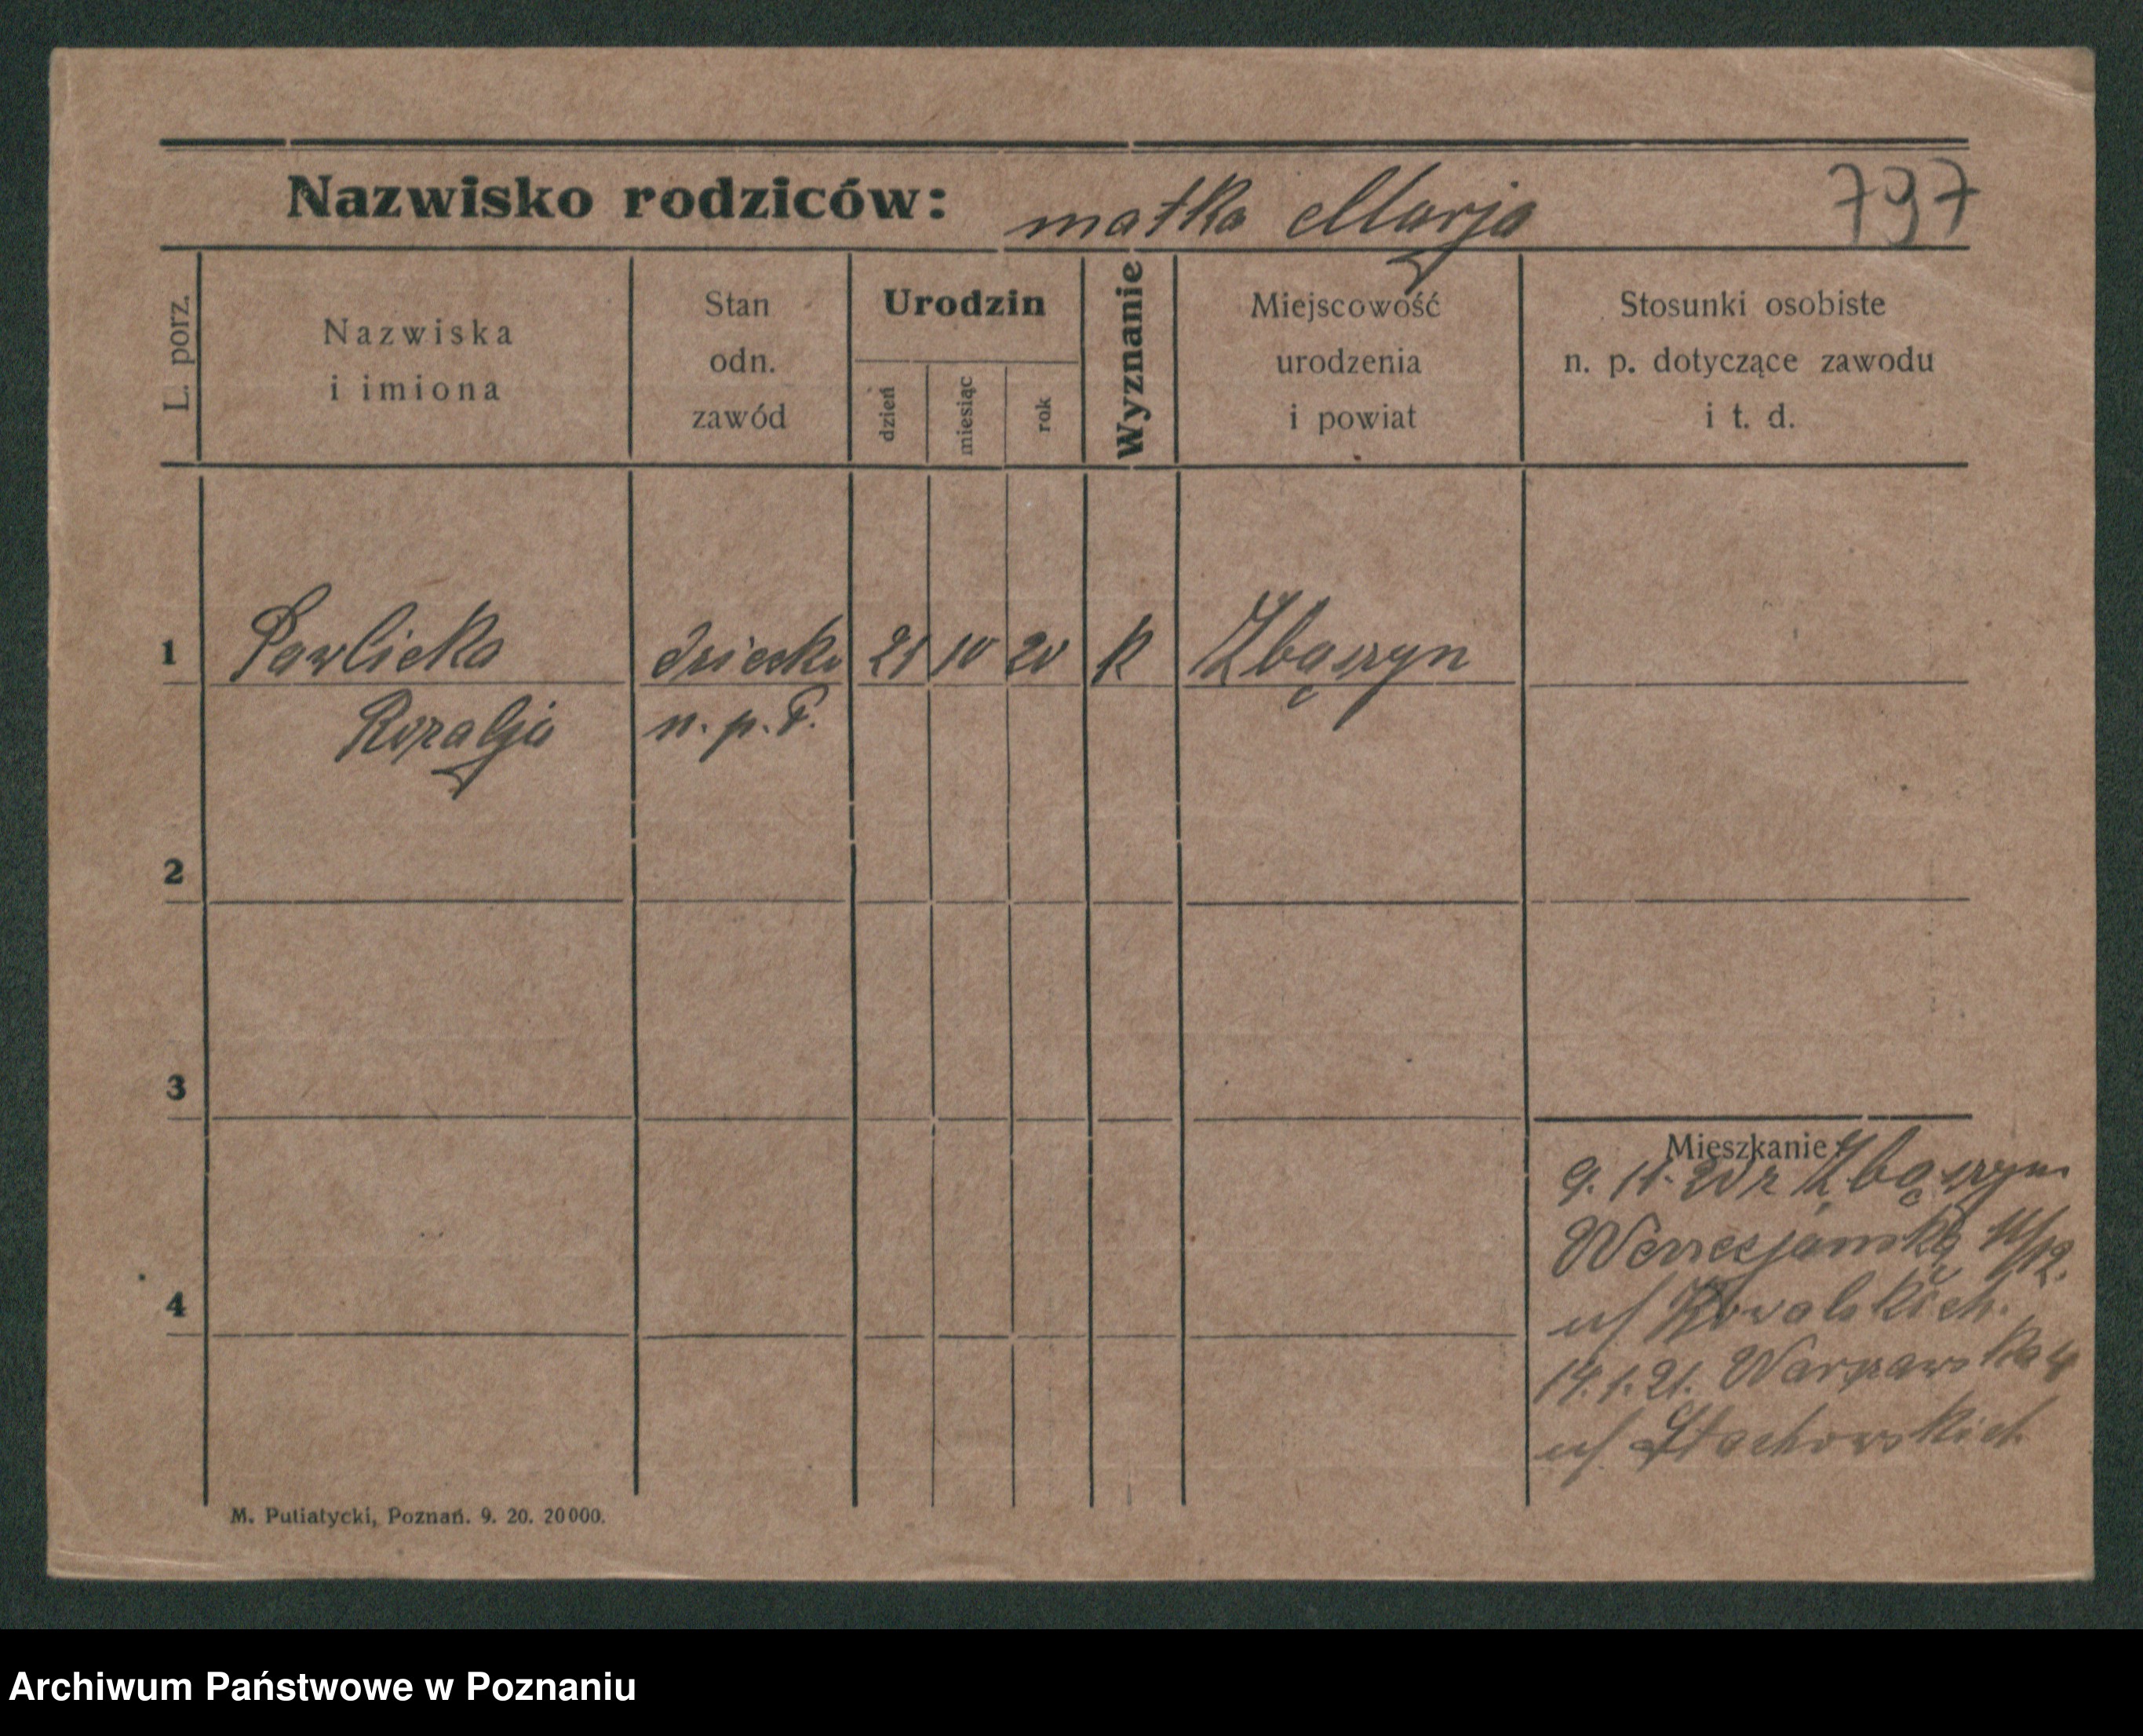 797
Nazwisko rodziców: matka Marja
L. porz.
Nazwiska
i imiona
Stan
odn.
zawód
Urodzin
dzień
miesiąc
rok
Wyznanie
Miejscowość
urodzenia
i powiat
Stosunki osobiste
n. p. dotyczące zawodu
i t. d.
1 Pawlicka dziecko 21 10 20 K Zbąszyn
Rozalja n. p. P.
2
3
4
Mieszkanie:
9. 11. 20 z Zbąszyn
11/12.
u/ Kowalskich.
14. 1. 21. Warszawska 4
u/ Stachowskich
M. Putiatycki, Poznań. 9. 20. 20000.
Archiwum Państwowe w Poznaniu